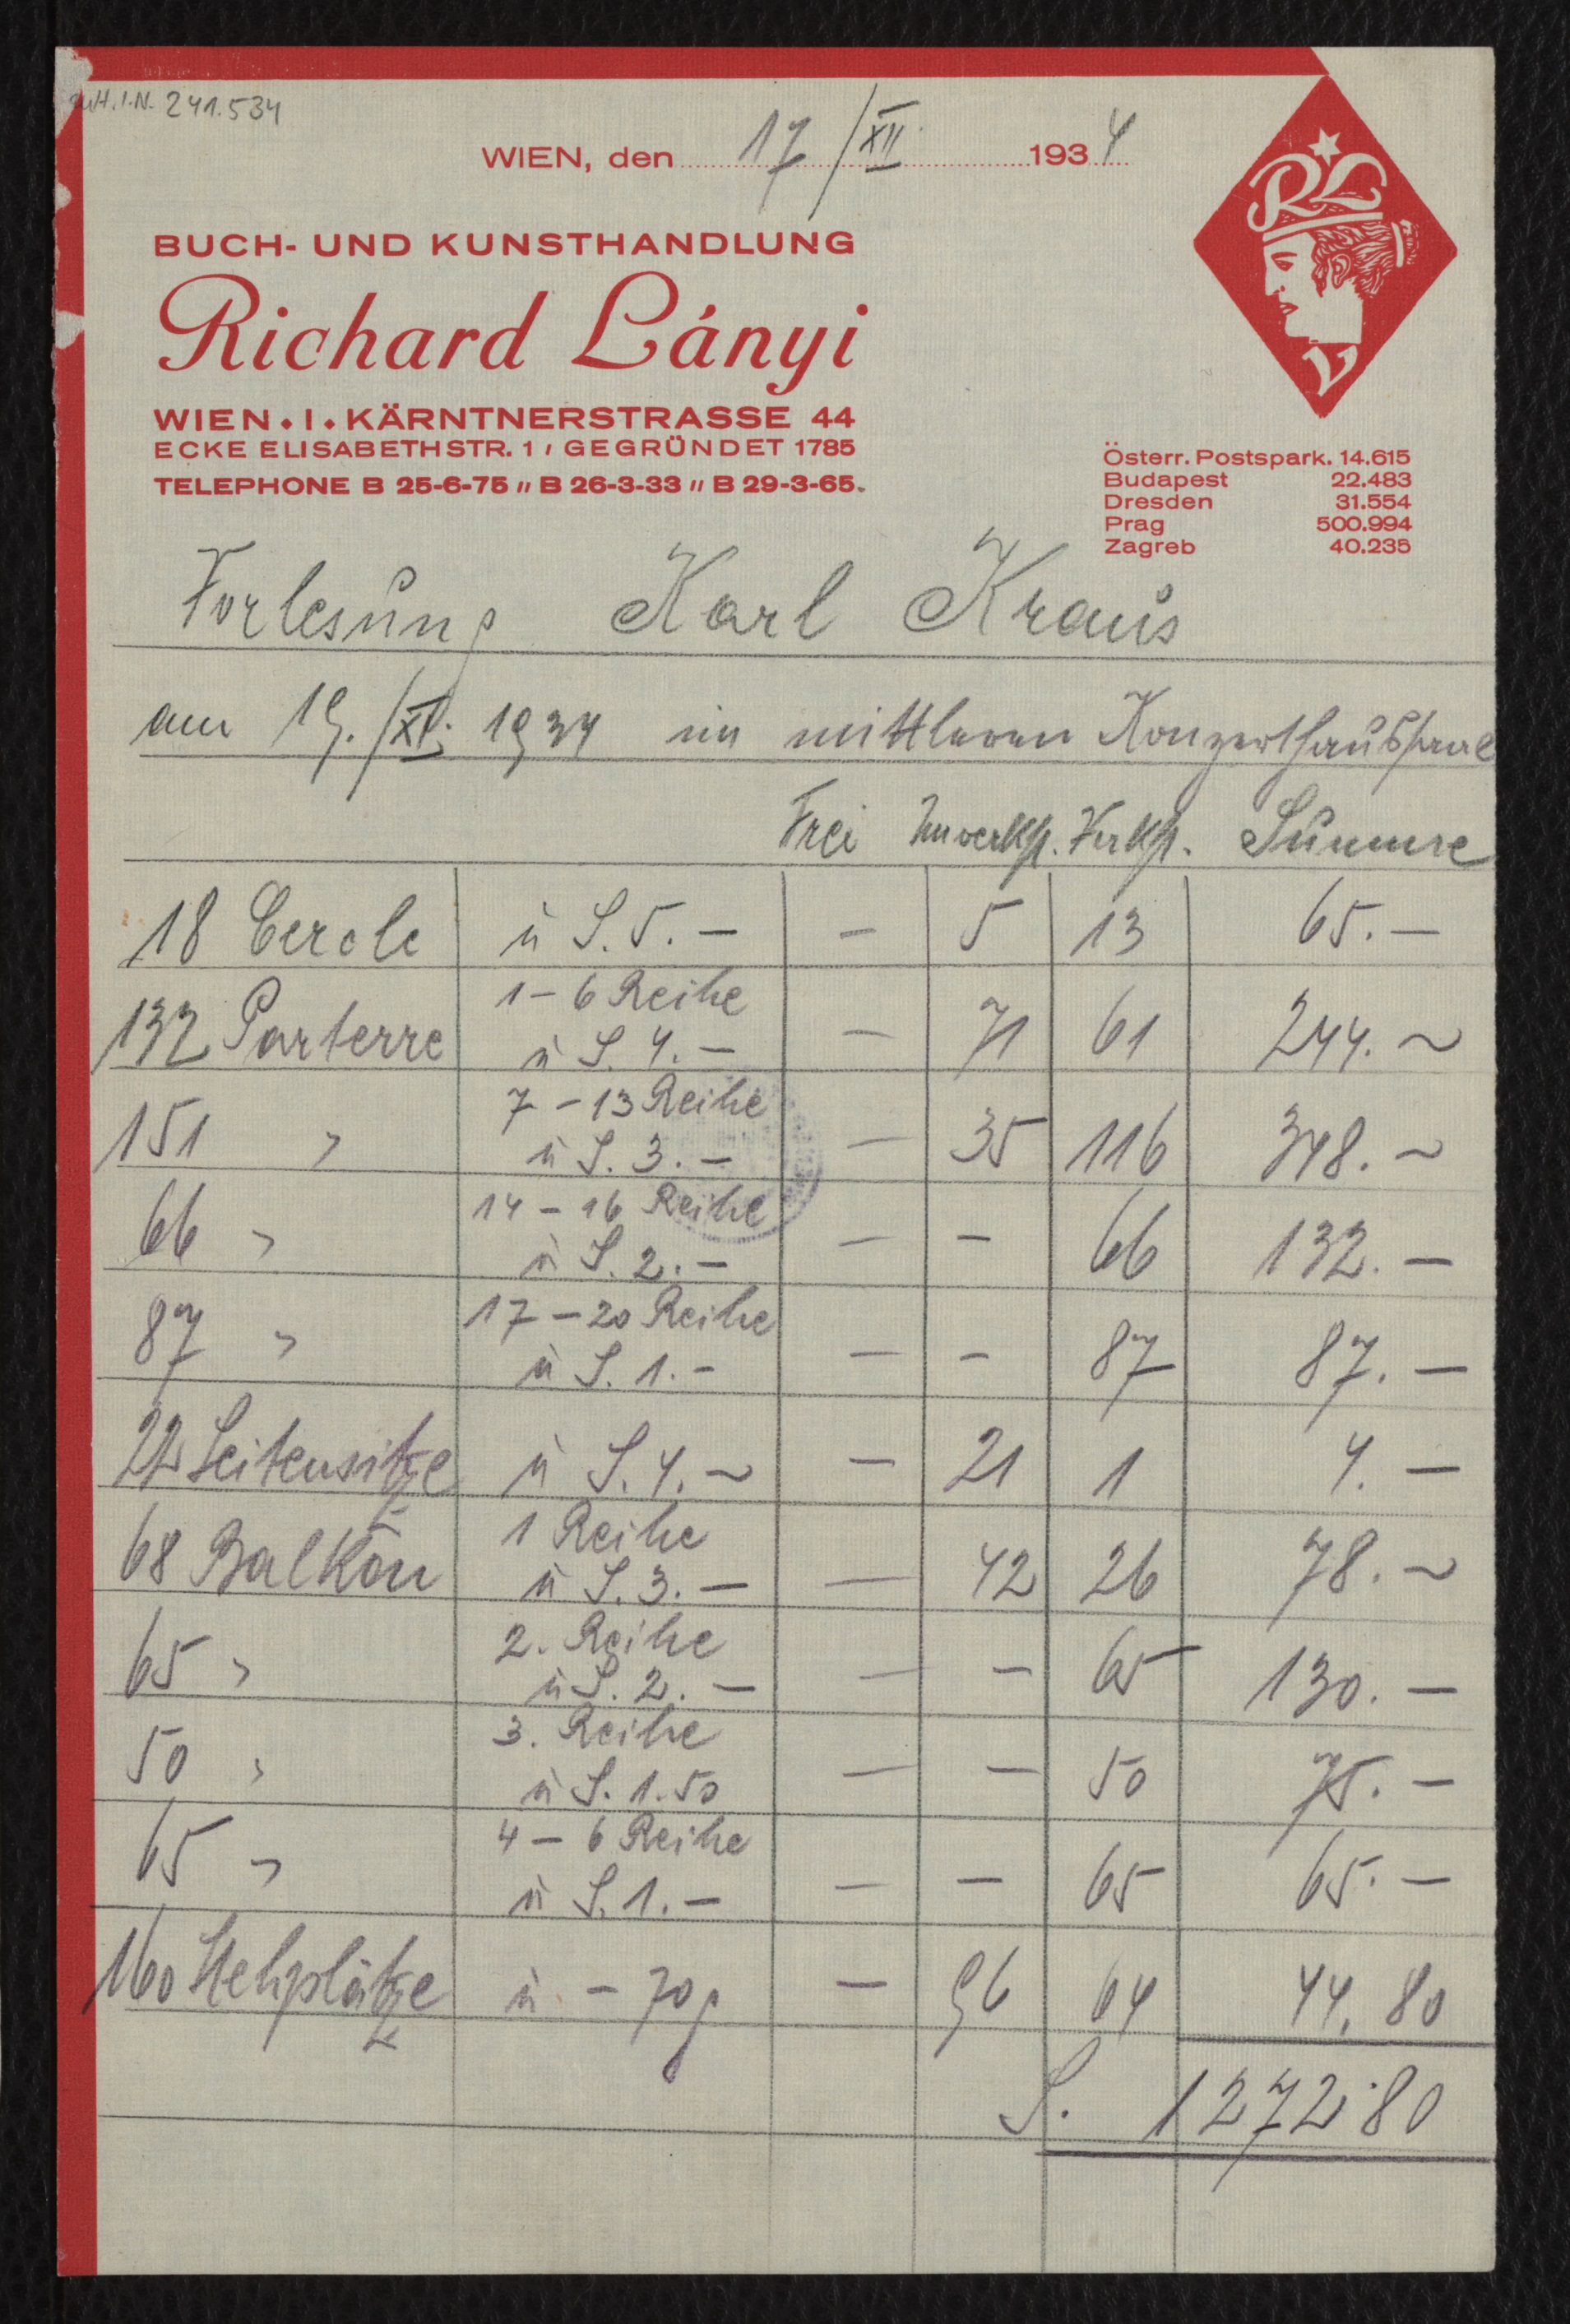 241.534
WIEN, den 17/XII 1934
BUCH- UND KUNSTHANDLUNG
Richard Lányi
WIEN • I • KÄRNTNERSTRASSE 44
ECKE ELISABETHSTR. 1 / GEGRÜNDET 1785
TELEPHONE B 25-6-75 // B 26-3-33 // B 29-3-65.
RL
Österr. Postspark. 14.615
Budapest 22.483
Dresden 31.554
Prag 500.994
Zagreb 40.235
Vorlesung Karl Kraus
am 19./XI. 1934 im mittleren Konzerthaussaal
Frei Unverkft. Verkft. Summe
18 Cercle à S. 5.— — 5 13 65.—
1–6 Reihe
132 Parterre à S. 4.— — 71 61 244.—
7–13 Reihe
151 " à S. 3.— — 35 116 348.—
14–16 Reihe
66 " à S. 2.— — — 66 132.—
17–20 Reihe
87 " à S. 1.— — — 87 87.—
22 Seitensitze à S. 4.— — 21 1 4.—
1 Reihe
68 Balkon à S. 3.— — 42 26 78.—
2. Reihe
65 " à S. 2.— — — 65 130.—
3. Reihe
50 " à S. 1.50 — — 50 75.—
4–6 Reihe
65 " à S. 1.— — — 65 65.—
160 Stehplätze à –70 g — 96 64 44.80
S. 1272.80